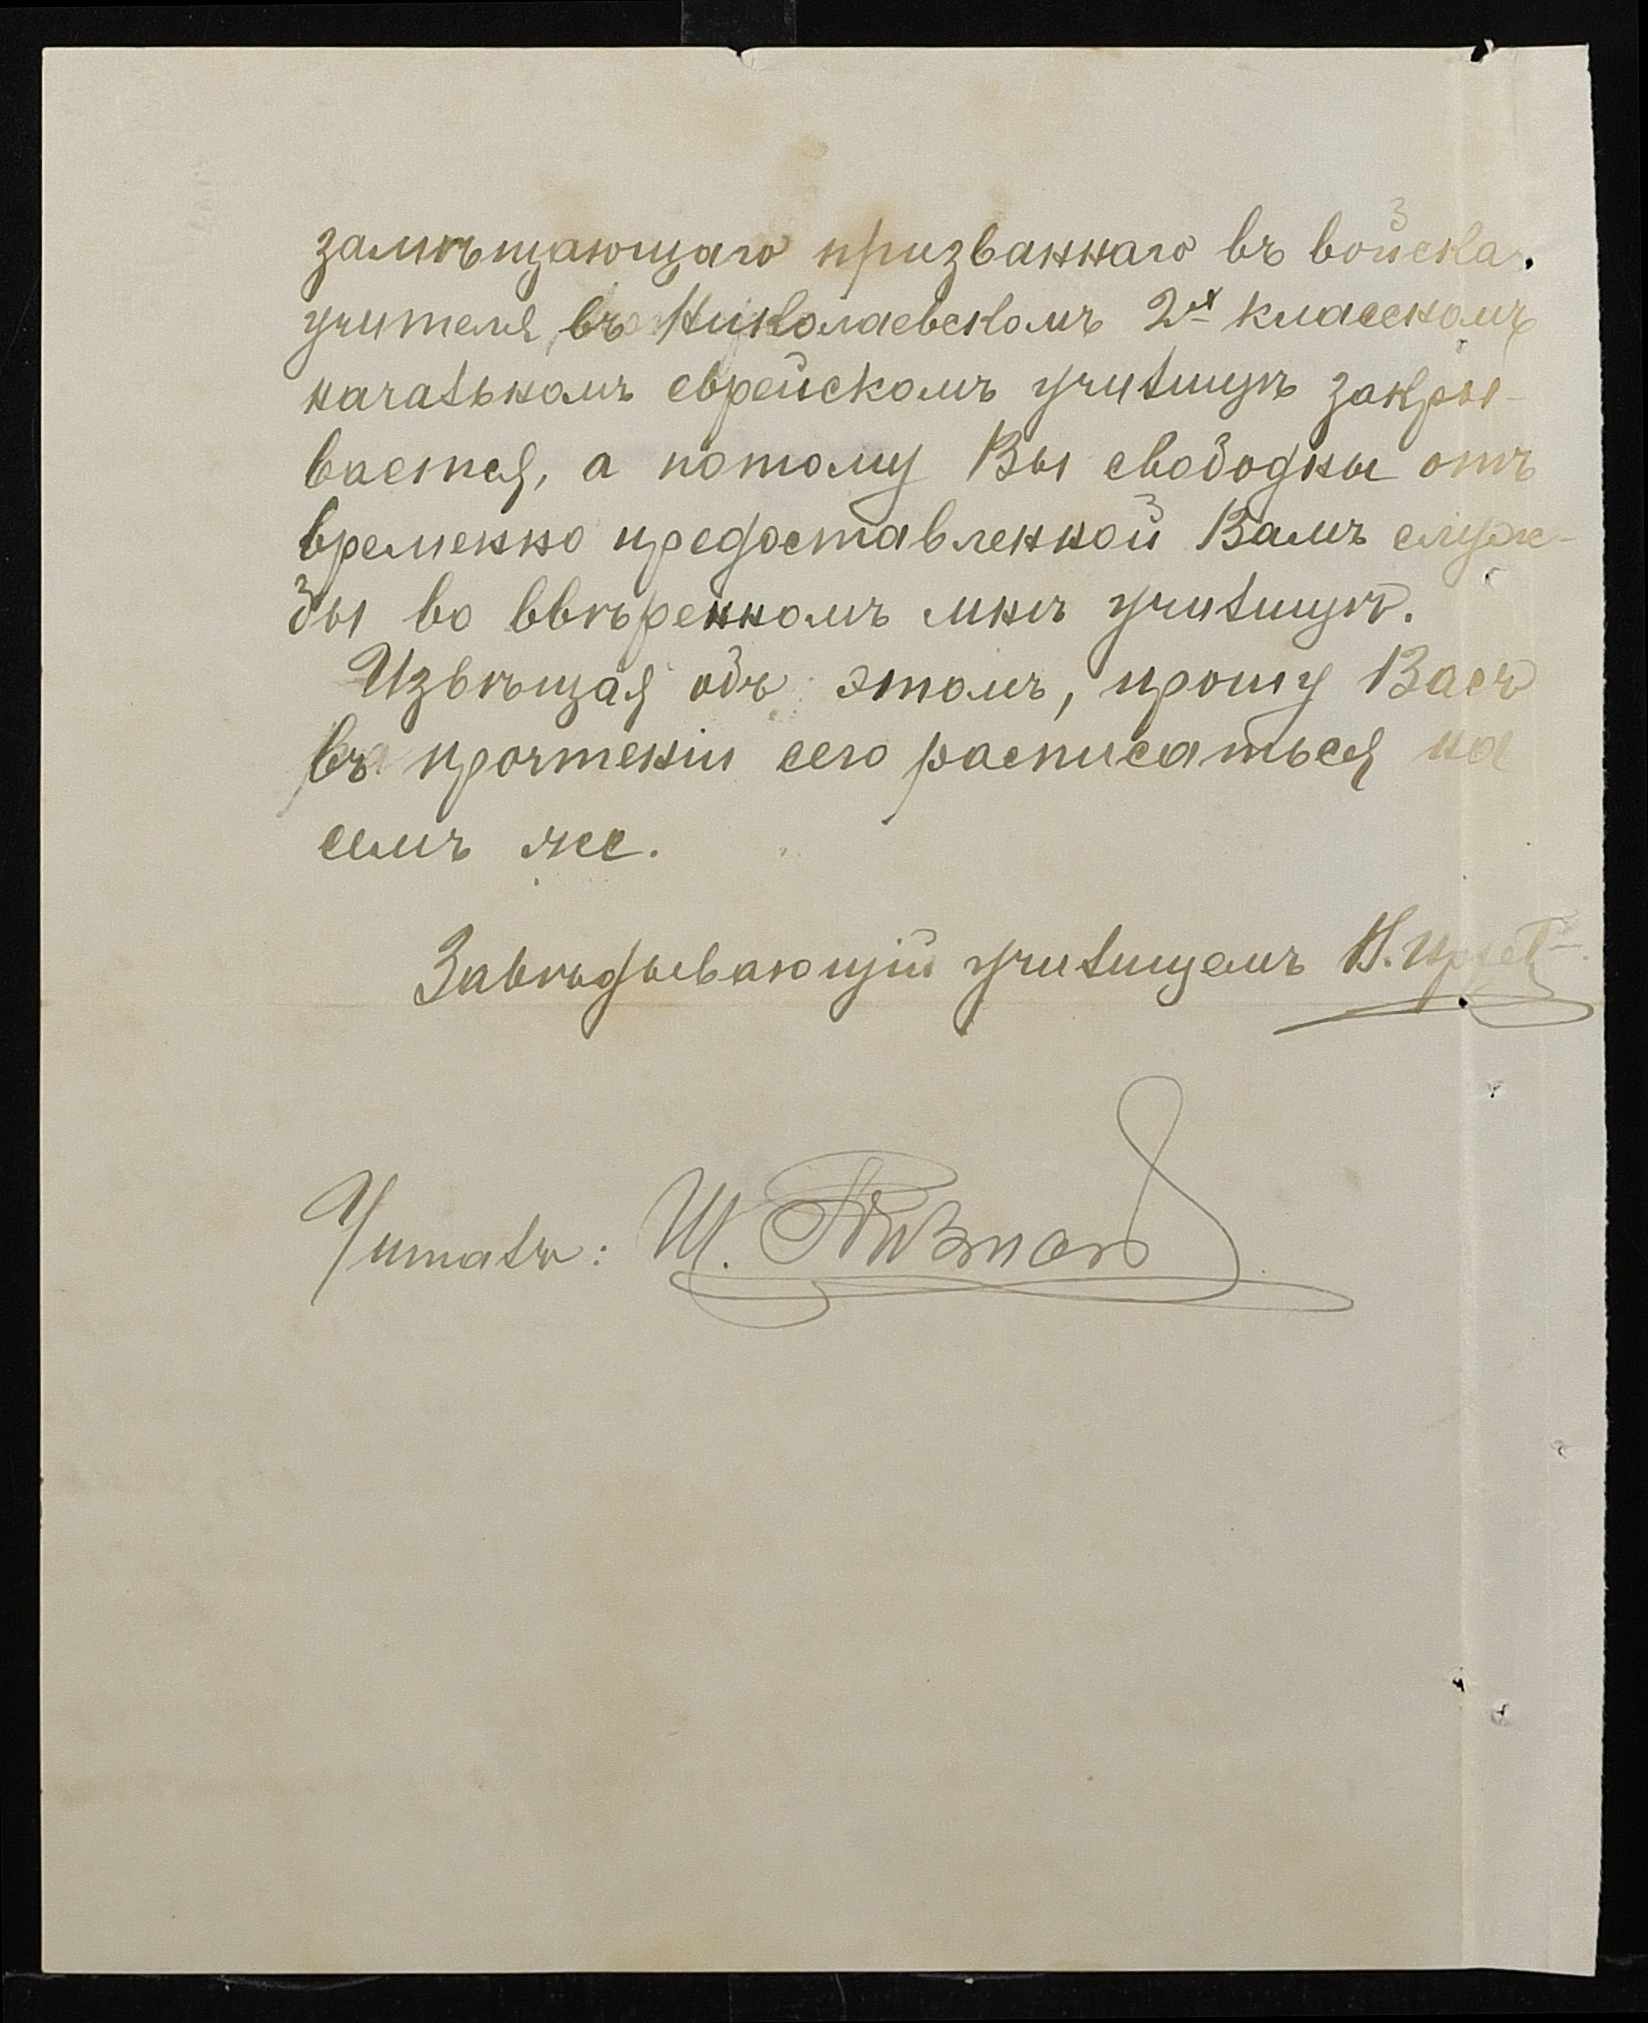 замѣщающаго призваннаго въ войска
учителя, въ Николаевскомъ 2х классномъ
начальномъ еврейскомъ училищѣ закры-
вается, а потому Вы свободны отъ
временно предоставленной Вамъ служ-
бы во ввѣренномъ мнѣ училищѣ.
Извѣщая объ этомъ, прошу Васъ
въ прочтеніи сего расписаться на
семъ же.
Завѣдывающій училищемъ Н.
Читалъ: Ш.